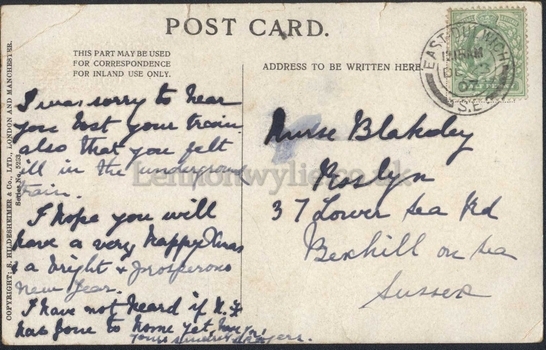 POST CARD.
THIS PART MAY BE USED
FOR CORRESPONDENCE
FOR INLAND USE ONLY.
ADDRESS TO BE WRITTEN HERE.
EAST DULWICH
DE
07
S.E.
COPYRIGHT: R. HILDESHEIMER & Co., LTD., LONDON AND MANCHESTER.
Series No. 5233.
I was sorry to hear
you lost your train
also that you felt
ill in the underground
train.
I hope you will
have a very happy Xmas
& a bright & prosperous
New Year.
I have not heard if N.
has gone to home yet have you
yours sincerely
Nurse Blakeley
Roslyn
37 Lower Sea Rd
Bexhill on Sea
Sussex
Lennonwylie.co.uk